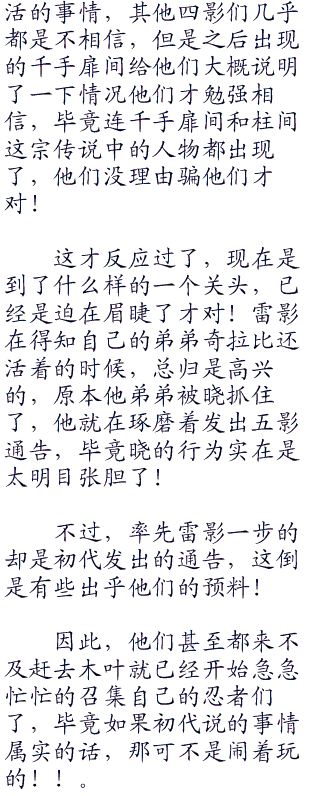 活的事情，其他四影们几乎
都是不相信，但是之后出现
的千手扉间给他们大概说明
了一下情况他们才勉强相
信，毕竟连千手扉间和柱间
这宗传说中的人物都出现
了，他们没理由骗他们才
对！
这才反应过了，现在是
到了什么样的一个关头，已
经是迫在眉睫了才对！雷影
在得知自己的弟弟奇拉比还
活着的时候，总归是高兴
的，原本他弟弟被晓抓住
了，他就在琢磨着发出五影
通告，毕竟晓的行为实在是
太明目张胆了！
不过，率先雷影一步的
却是初代发出的通告，这倒
是有些出乎他们的预料！
因此，他们甚至都来不
及赶去木叶就已经开始急急
忙忙的召集自己的忍者们
了，毕竟如果初代说的事情
属实的话，那可不是闹着玩
的！！。